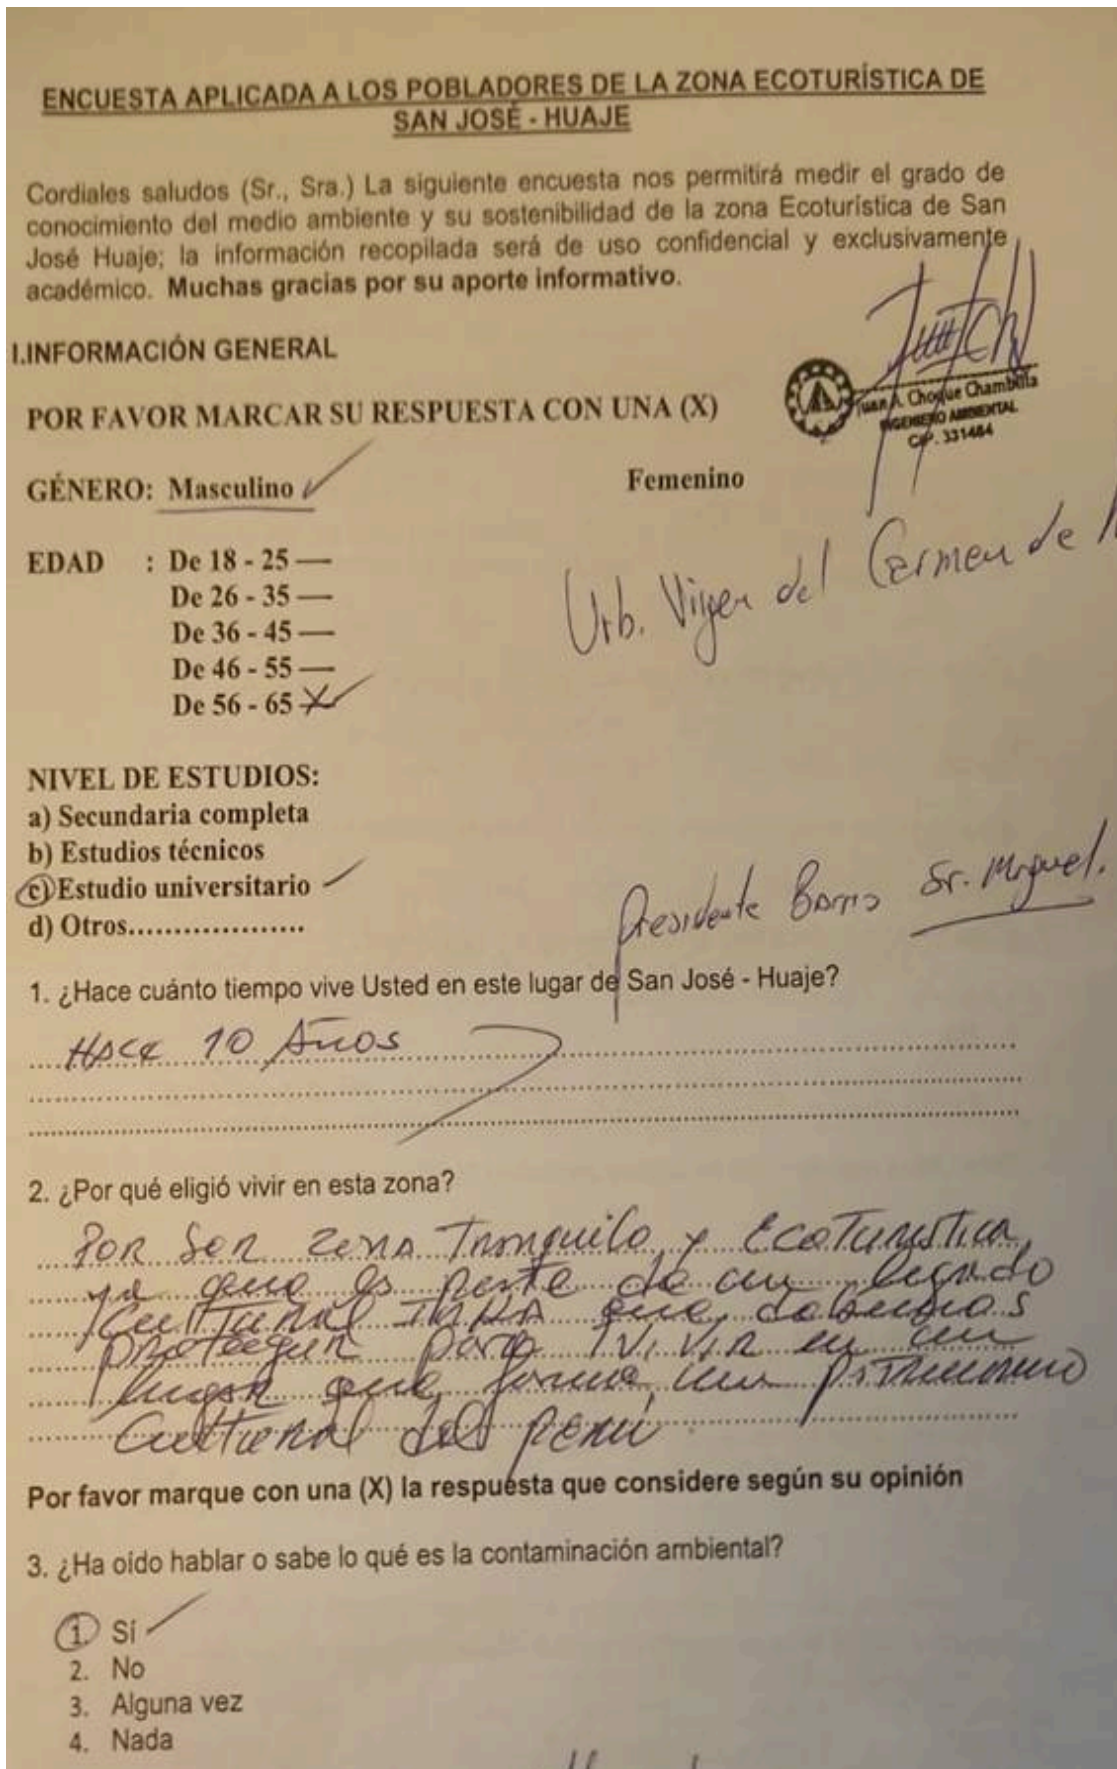 ENCUESTA APLICADA A LOS POBLADORES DE LA ZONA ECOTURÍSTICA DE
SAN JOSÉ - HUAJE
Cordiales saludos (Sr., Sra.) La siguiente encuesta nos permitirá medir el grado de
conocimiento del medio ambiente y su sostenibilidad de la zona Ecoturística de San
José Huaje; la información recopilada será de uso confidencial y exclusivamente
académico. Muchas gracias por su aporte informativo.
I.INFORMACIÓN GENERAL
Juan A. Choque Chambilla
INGENIERO AMBIENTAL
CIP. 331484
POR FAVOR MARCAR SU RESPUESTA CON UNA (X)
GÉNERO: Masculino Femenino
EDAD : De 18 - 25 —
De 26 - 35 —
De 36 - 45 —
De 46 - 55 —
De 56 - 65 X
Urb. Virgen del Carmen de
NIVEL DE ESTUDIOS:
a) Secundaria completa
b) Estudios técnicos
c) Estudio universitario
d) Otros...................
Presidente Barrio Sr. Miguel.
1. ¿Hace cuánto tiempo vive Usted en este lugar de San José - Huaje?
Hace 10 Años
2. ¿Por qué eligió vivir en esta zona?
Por Ser zona Tranquila y EcoTuristica,
ya que es parte de un legado
Cultural que debemos
proteger para vivir en un
lugar que forma un patrimonio
Cultural del Perú.
Por favor marque con una (X) la respuesta que considere según su opinión
3. ¿Ha oído hablar o sabe lo qué es la contaminación ambiental?
1. Sí
2. No
3. Alguna vez
4. Nada